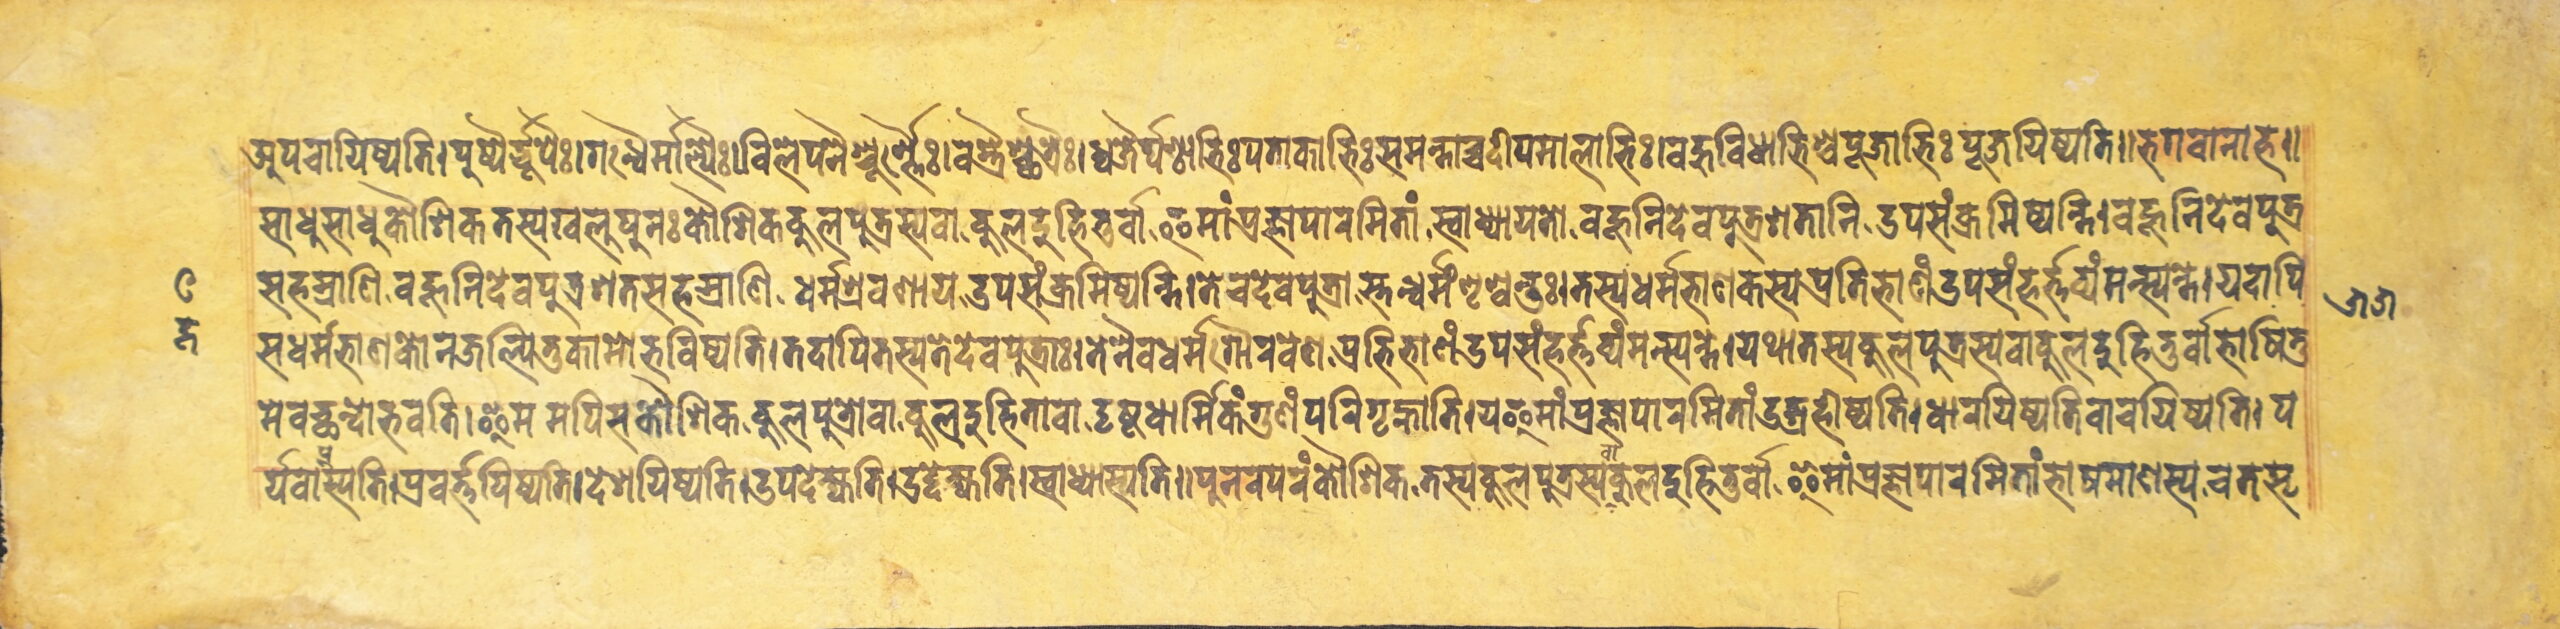 अपचायिष्यति। पुष्पैर्द्धूपैः। गन्धैर्माल्यैः। विलेपनैश्चूर्ण्णैः। वस्त्रैश्छत्रैः। ध्वजैर्घण्ठाभिः पताकाभिः समन्ताच्च दीपमालाभिः। बहुविधाभिश्च पूजाभिः पूजयिष्यति॥ भगवानाह॥
साधु साधु कौशिक तस्य खलु पुनः कौशिक कुलपुत्रस्य वा कुलदुहितुर्वा इमां प्रज्ञापारमितां स्वाध्यायतो बहूनि देवपुत्रशतानि उपसंक्रमिष्यन्ति। बहूनि देवपुत्र
सहस्राणि बहूनि देवपुत्रशतसहस्राणि धर्मश्रवणाय उपसंक्रमिष्यन्ति। ते च देवपुत्रा स्तन्धर्मं शृण्वन्तुः। तस्य धर्मभाणकस्य प्रतिभाणं उपसंहर्त्तव्यं मन्स्यन्ते। यदापि
स धर्मभाणको न जल्पितुकामो भविष्यति। तदापि तस्य ते देवपुत्राः। तेनैव धर्मगौरवेण प्रतिभाणं उपसंहर्त्तव्यं मन्स्यन्ते। यथा तस्य कुलपुत्रस्य वा कुलदुहितुर्वा भाषितु
मेव च्छन्दो भवति। इममपि स कौशिक कुलपुत्रो वा कुलदुहिता वा दृष्टधार्मिकं गुणं परिगृह्णाति। य इमां प्रज्ञापारमितां उद्ग्रहीष्यति। धारयिष्यति वाचयिष्यति। प
र्यवाप्स्यति। प्रवर्त्तयिष्यति। देशयिष्यति। उपदेक्ष्यति। उद्देक्ष्यति। स्वाध्यास्यति॥ पुनरपरं कौशिक तस्य कुलपुत्रस्य वा कुलदुहितुर्वा इमां प्रज्ञापारमितां भाषमाणस्य चतसृ